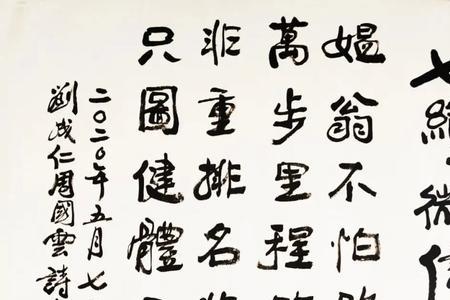 七絕·微信
媼翁不怕
萬步里程
非重排名
只圖健體
二〇二〇年五月七
劉成仁周國雲詩